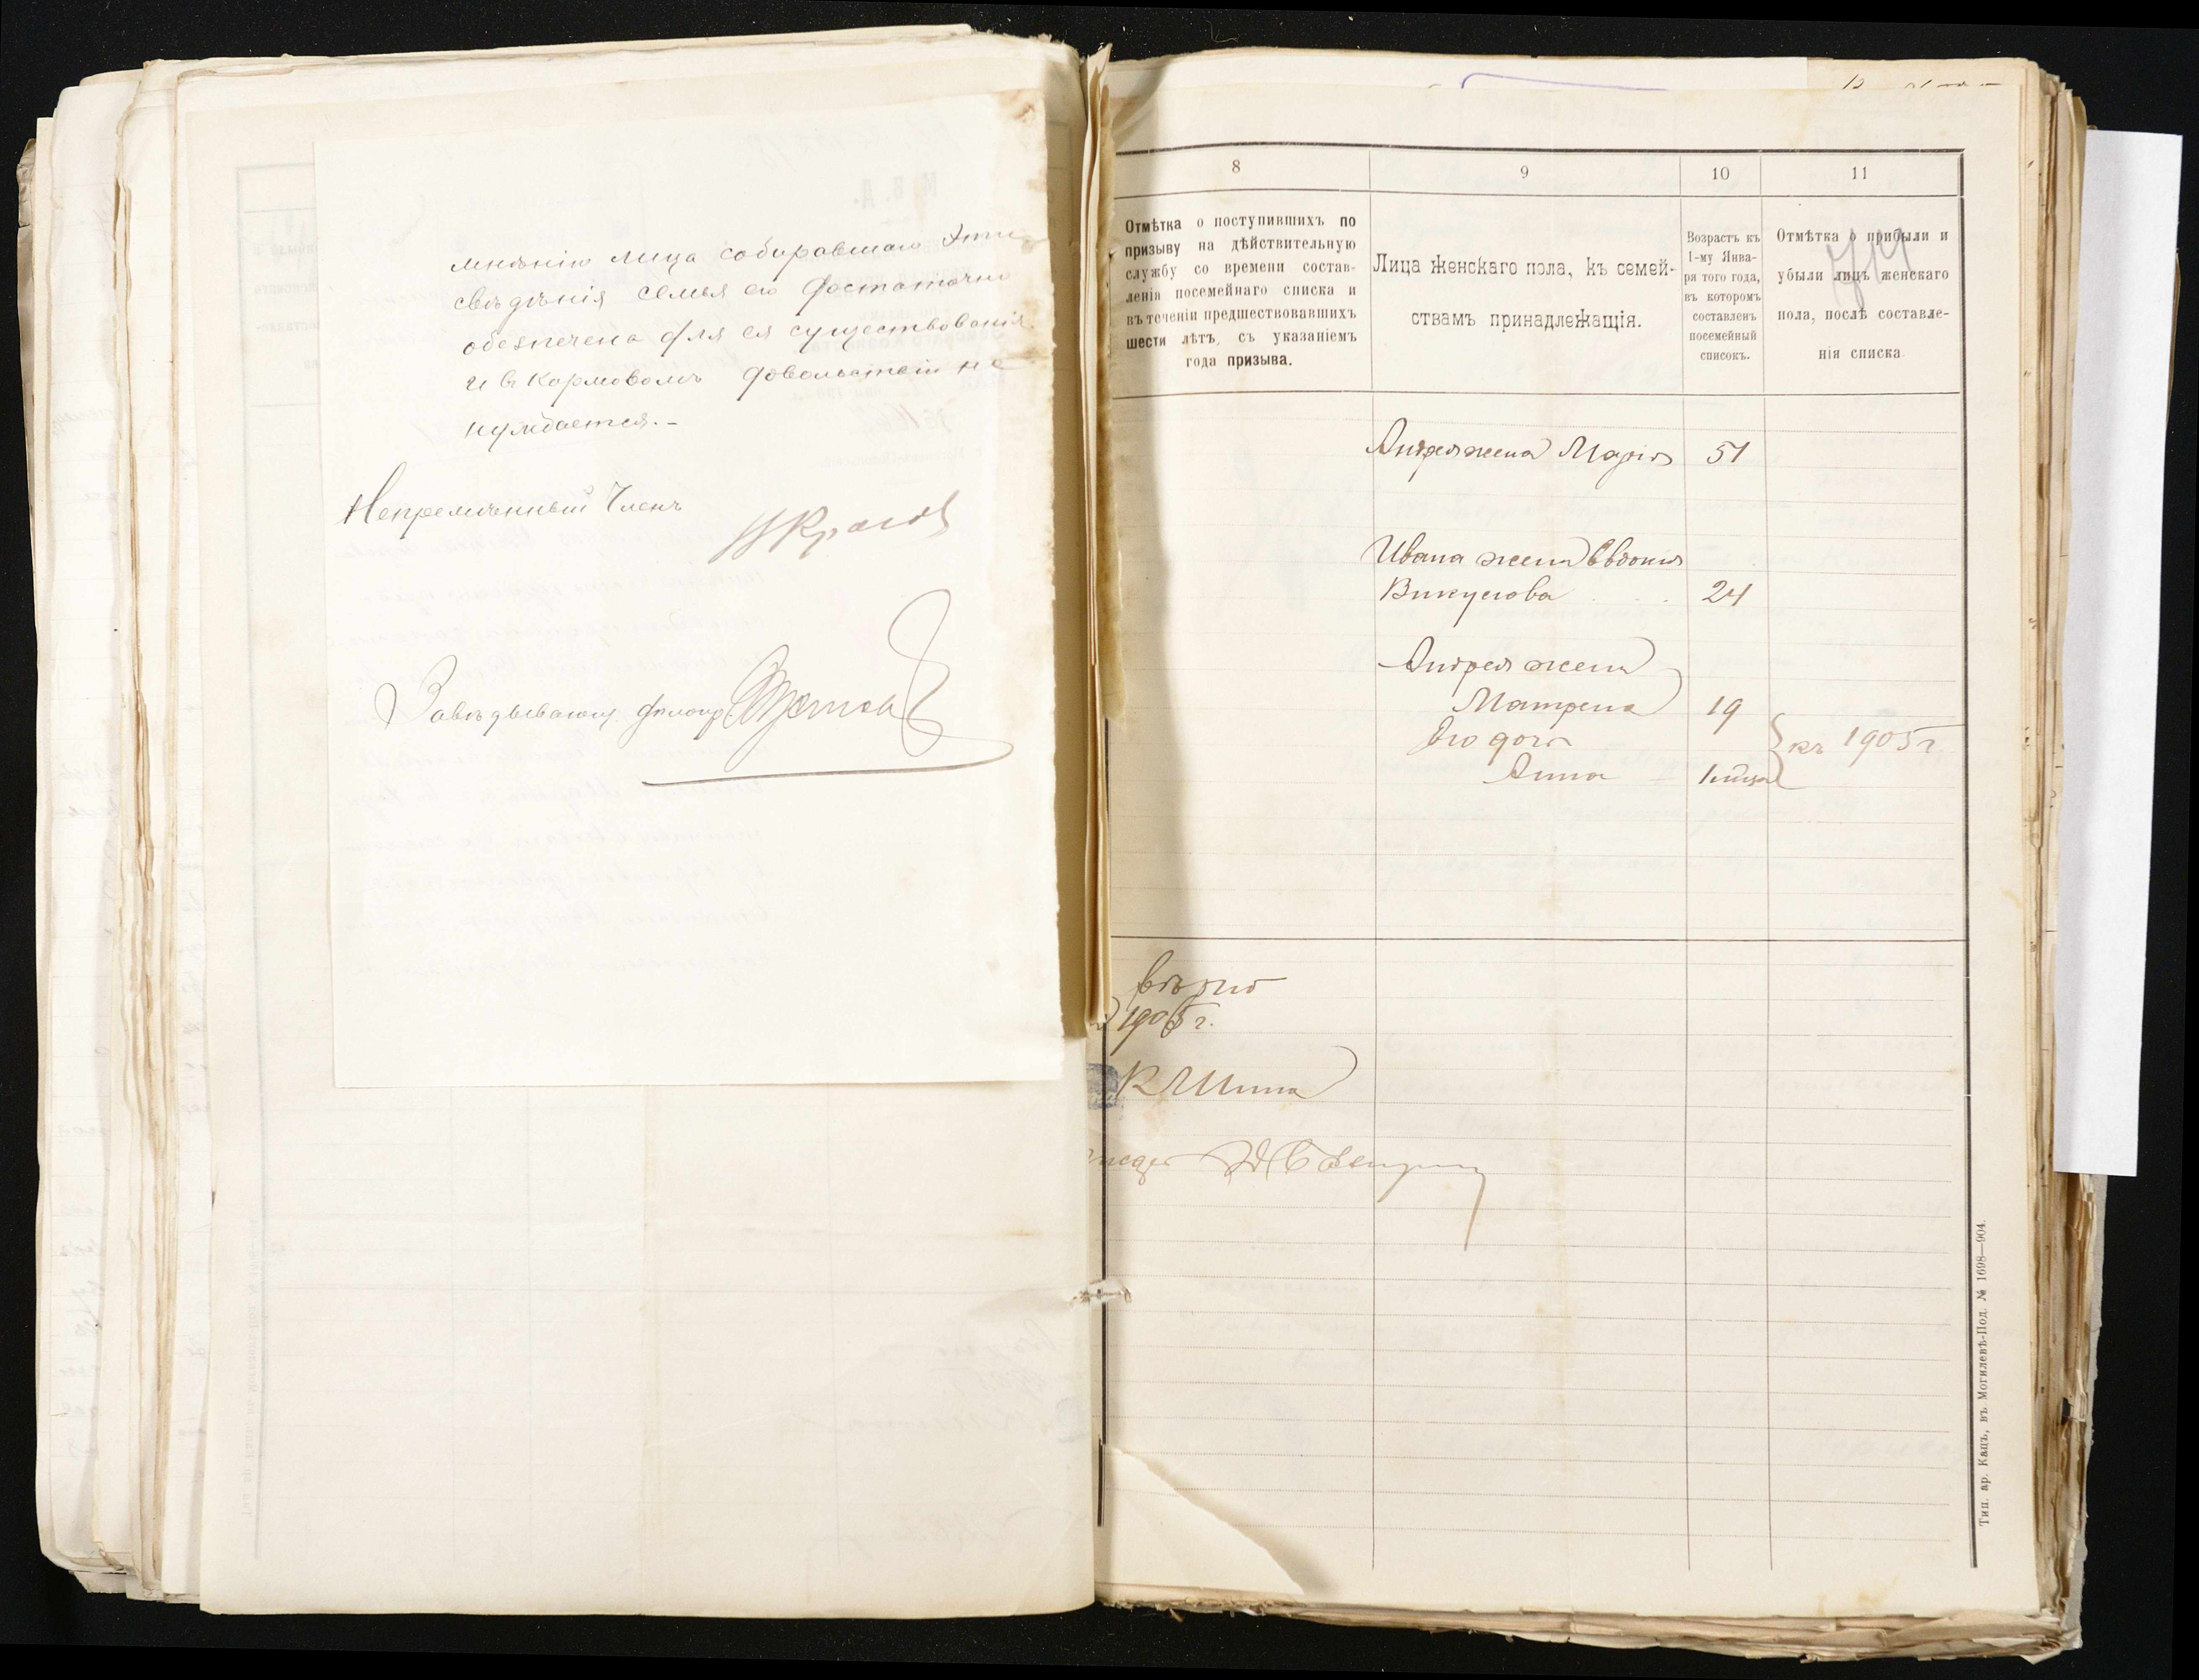 мнѣнію лица собиравшаго эти
свѣдѣнія семья его достаточно
обезпечена для ея существованія
и въ кормовомъ довольствіи не
нуждается.-
Непремѣнный Членъ
Завѣдывающ. дѣлопр.
8
9
10
11
Отмѣтка о поступившихъ по
призыву на дѣйствительную
службу со времени состав-
ленія посемейнаго списка и
въ теченіи предшествовавшихъ
шести лѣтъ, съ указаніемъ
года призыва.
Лица женскаго пола, къ семей-
ствамъ принадлежащія.
Возрастъ къ
1-му Янва-
ря того года,
въ которомъ
составленъ
посемейный
списокъ.
Отмѣтка о прибыли и
убыли лицъ женскаго
пола, послѣ составле-
нія списка
Андрея жена Марія 51
Ивана жена Евдокія
24
Андрея жена
Матрена 19
Его дочь
Анна
къ 1905 г.
вѣрно
1905 г.
Тип. ар. Кацъ, въ Могилевѣ-Под. № 1698—904.